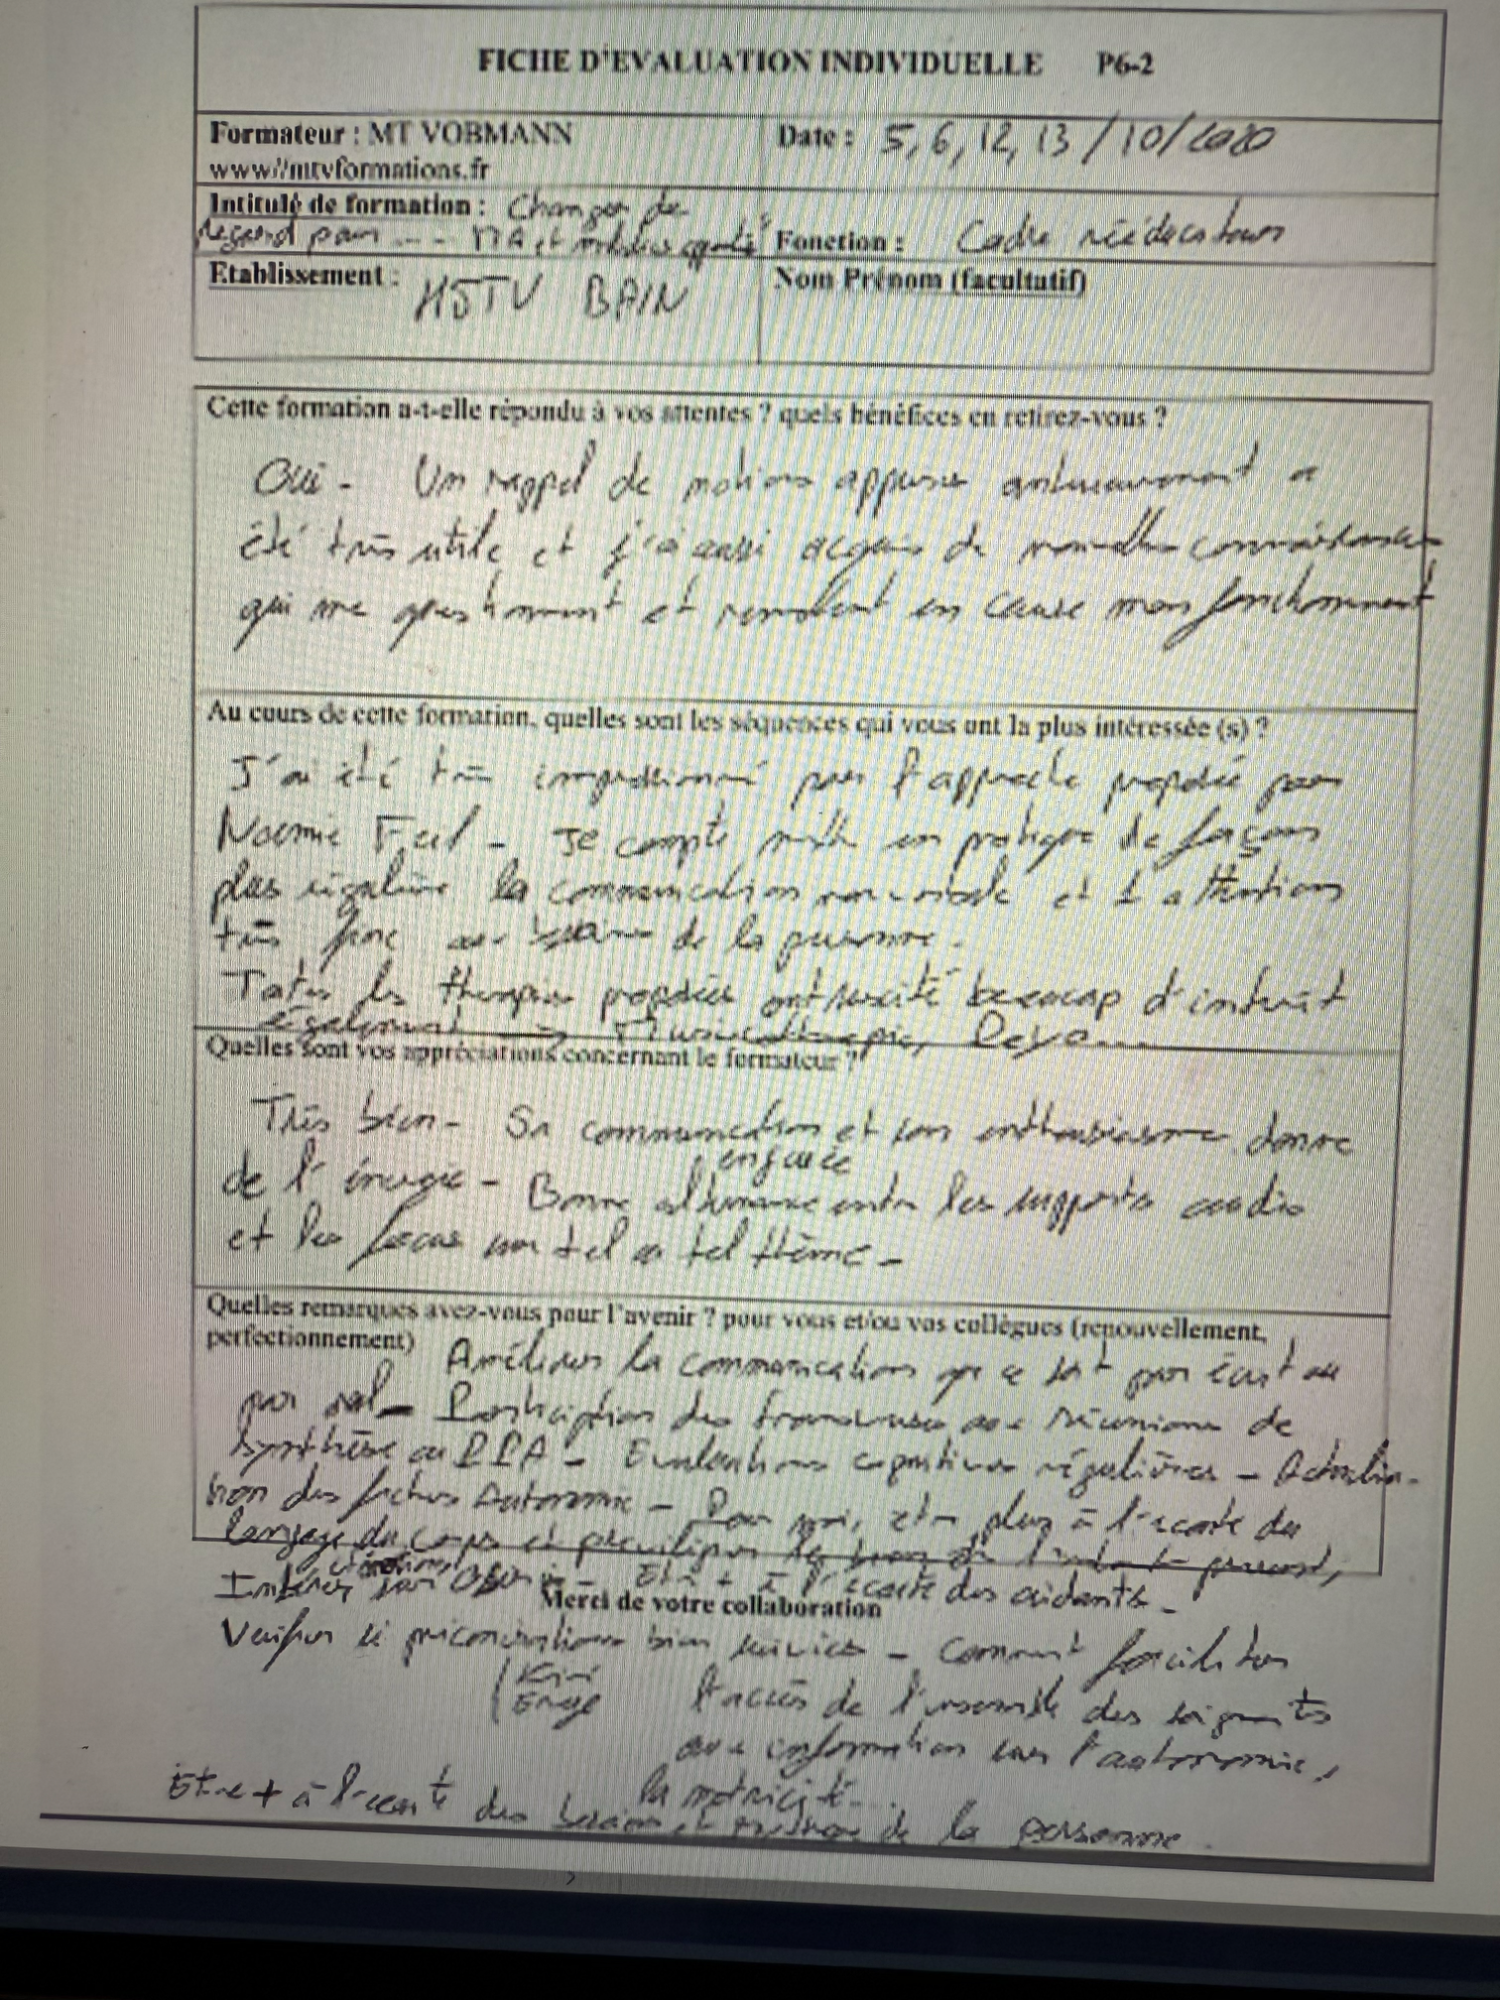 FICHE D'EVALUATION INDIVIDUELLE P6-2
Formateur : MT VOBMANN
www//mtvformations.fr
Date : 5, 6, 12, 13 / 10 / 2020
Intitulé de formation : Changer de
regard pour ... MA et
Fonction : Cadre rééducateurs
Etablissement : HSTV BAIN
Nom Prénom (facultatif)
Cette formation a-t-elle répondu à vos attentes ? quels bénéfices en retirez-vous ?
Oui - Un rappel de notions apprises antérieurement a
été très utile et j'ai aussi acquis de nouvelles connaissances
qui me questionnent et remettent en cause mon fonctionnement
Au cours de cette formation, quelles sont les séquences qui vous ont la plus intéressée (s) ?
J'ai été très impressionné par l'approche proposée par
Noemie Feil - Je compte mettre en pratique de façon
plus régulière la communication non verbale et l'attention
très fine aux de la personne.
Toutes les thérapies proposées ont suscité beaucoup d'intérêt
également Musicothérapie,
Quelles sont vos appréciations concernant le formateur ?
Très bien - Sa communication et son enthousiasme donne
de l'énergie - Bonne alternance entre les supports audio
et les focus sur tel ou tel thème -
Quelles remarques avez-vous pour l'avenir ? pour vous et/ou vos collègues (renouvellement,
perfectionnement) Améliorer la communication que ce soit par écrit ou
par oral - Participation des aux réunions de
synthèse ou PPA - Evaluations cognitives régulières - Actualisa-
tion des fiches Autonomie - Pour moi, être plus à l'écoute du
langage du corps et
Etre + à l'écoute des aidants -
Merci de votre collaboration
Vérifier si préconisations bien suivies - Comment faciliter
Kiné
Ergo
l'accès de l'ensemble des soignants
aux information sur l'autonomie,
la motricité...
Etre + à l'écoute des besoins et de la personne.